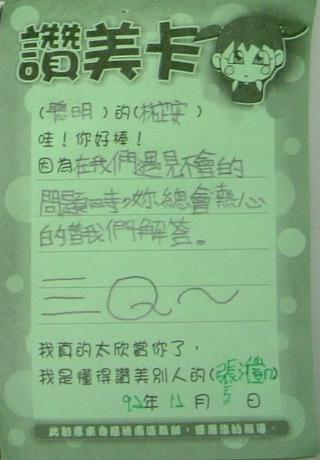 讚美卡
(聰明)的(林芷安)
哇！你好棒！
因為在我們遇見不會的
問題時，妳總會熱心
的替我們解答。
三Q～
我真的太欣賞你了，
我是懂得讚美別人的(張
92年12月5日